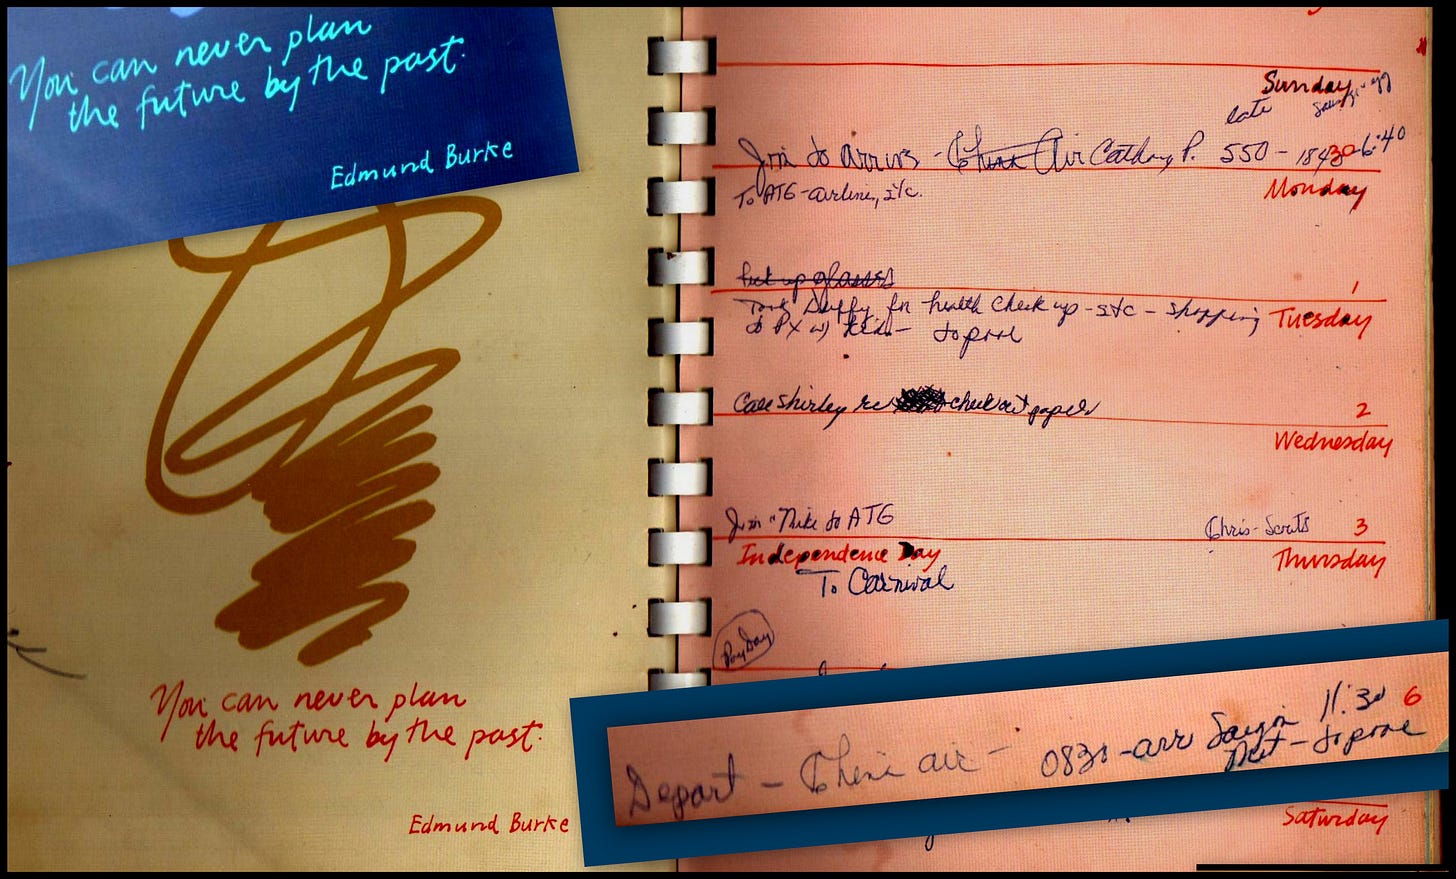 You can never plan
the future by the past.
Edmund Burke
You can never plan
the future by the past.
Edmund Burke
Sunday
late
Jim to arrive - China Air Cathay P. 550 - 6:40
Monday
To ATG - airline, etc.
pick up glasses
1
Took Duffy for health check up - etc - shopping
Tuesday
to PX w/ kids - to pool
Call Shirley re check out papers
2
Wednesday
Jim - Mike to ATG
Chris - Scouts
3
Independence Day
Thursday
To Carnival
Pay Day
Depart - China air - 0830 - arr Saigon 11:30
6
to pool
Saturday